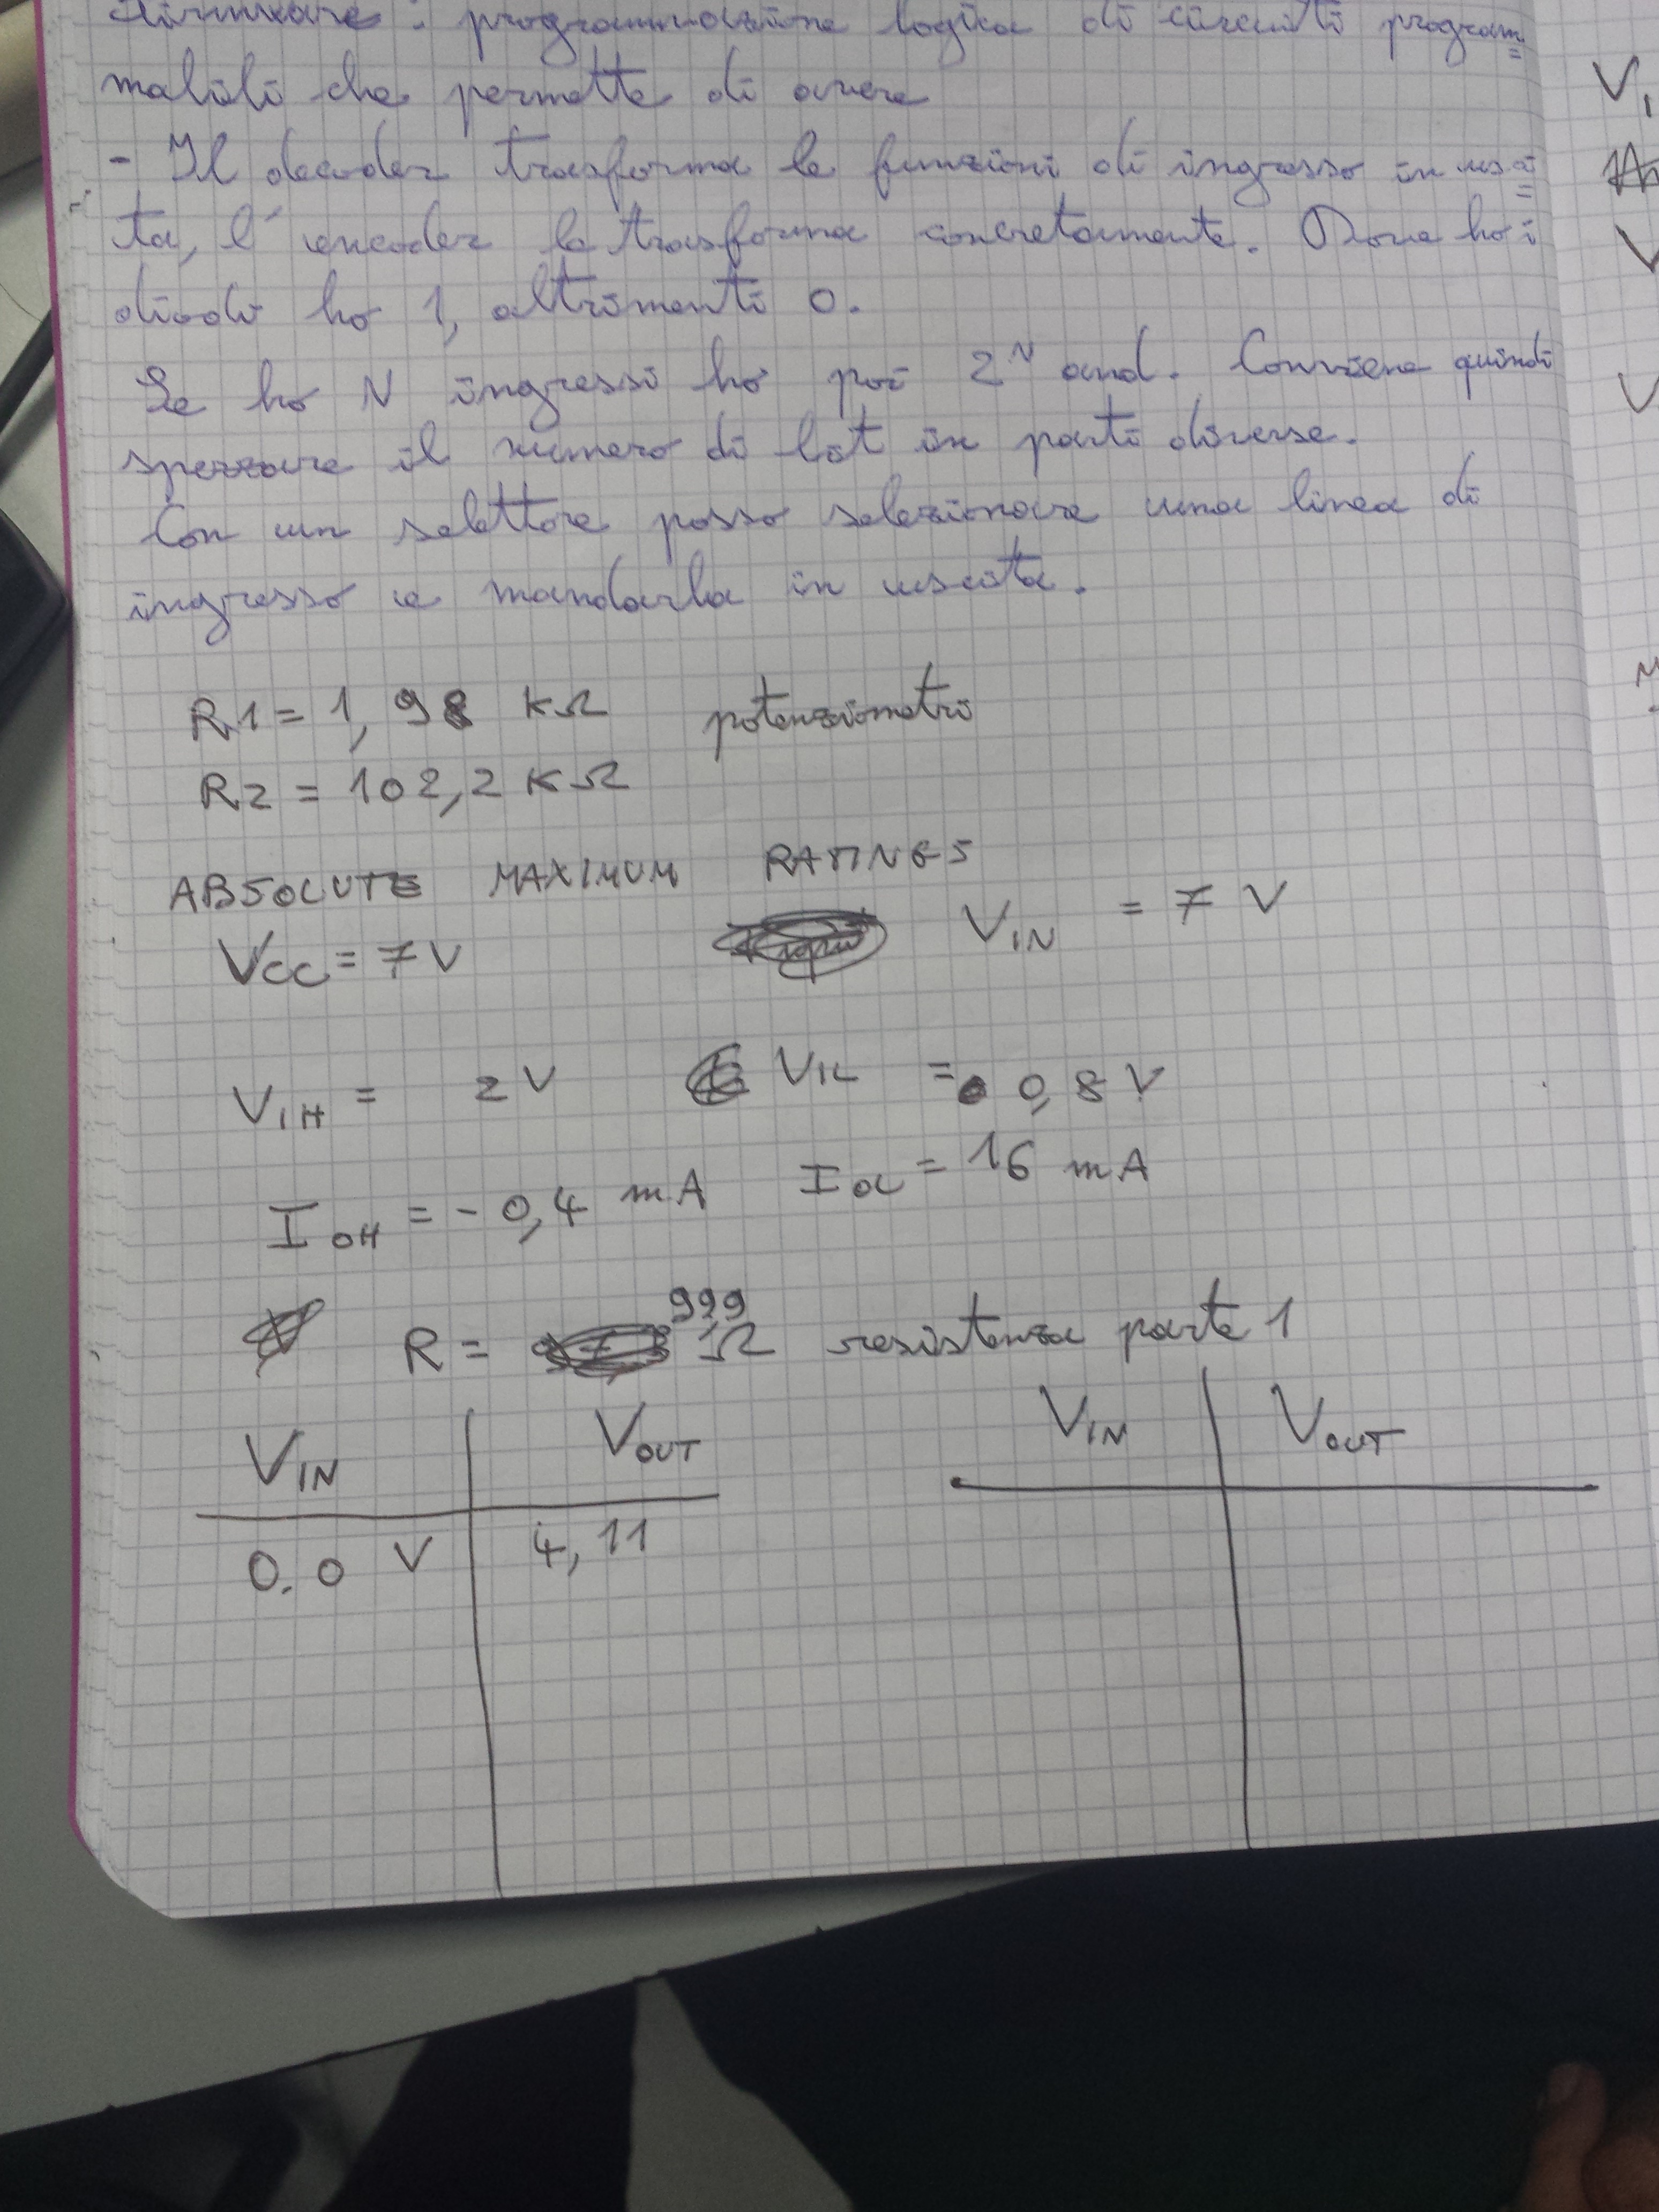 Firmware : programmazione logica di circuiti program=
mabili che permette di avere
- Il decoder trasforma le funzioni di ingresso in usci=
ta, l'encoder le trasforma concretamente. Dove ho i
diodi ho 1, altrimenti 0.
Se ho N ingressi ho poi 2^N and. Conviene quindi
spezzare il numero di bit in parti diverse.
Con un selettore posso selezionare una linea di
ingresso e mandarla in uscita.
R1 = 1,98 KΩ potenziometri
R2 = 102,2 KΩ
ABSOLUTE MAXIMUM RATINGS
VCC = 7 V VIN = 7 V
VIH = 2 V VIL = 0,8 V
IOH = - 0,4 mA IOL = 16 mA
R = 999 Ω resistenza parte 1
VIN VOUT VIN VOUT
0.0 V 4,11